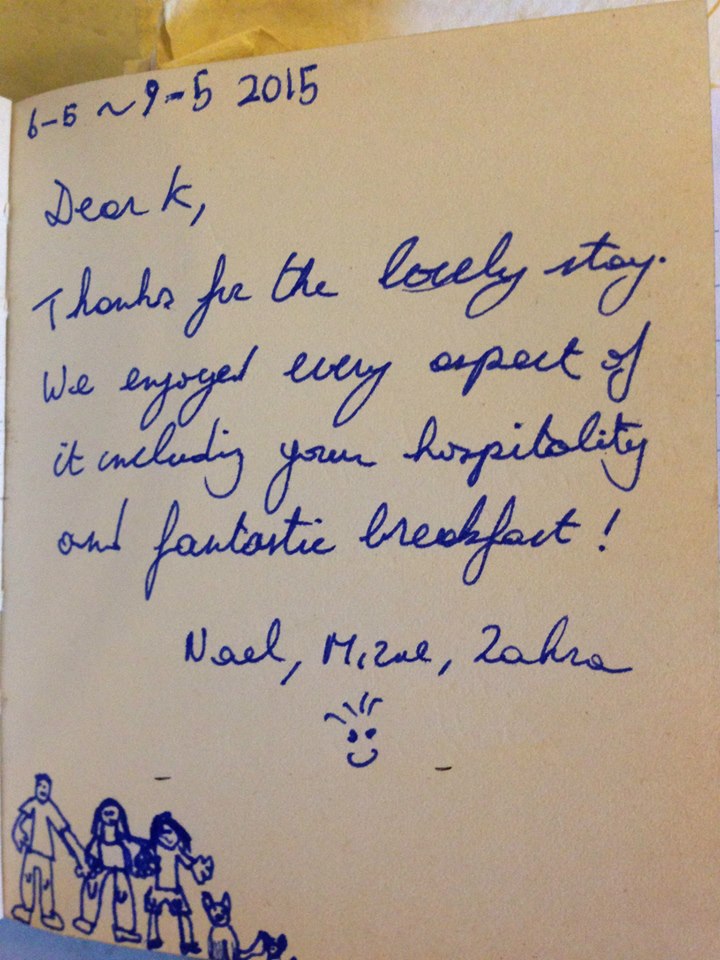 6-5 ~ 9-5 2015
Dear K,
Thanks for the lovely stay.
We enjoyed every aspect of
it including your hospitality
and fantastic breakfast!
Nael, Zahra